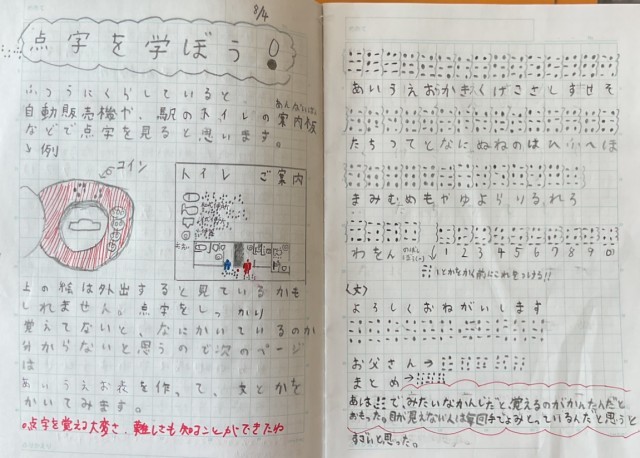 8/4
点字を学ぼう!
ふつうにくらしていると
自動販売機や、駅のトイレの案内板
あんないばん
などで点字を見ると思います。
↓例
コイン
トイレ ご案内
上の絵は外出すると見ているかも
しれません。点字をしっかり
覚えてないと、なにかいているのか
分からないと思うので次のページ
は
あいうえお表を作って、文とかを
かいてみます。
点字を覚える大変さ、難しても知ることができたね
あいうえおかきくけこさしすせそ
たちつてとなにぬねのはひふへほ
まみむめもやゆよらりるれろ
わをん
1 2 3 4 5 6 7 8 9 0
とかをかく前にこれをつける!!
〈文〉
よろしくおねがいします
お父さん→
まとめ→
あは⠿で、みたいなかんじだと覚えるのがかんたんだと
おもった。目が見えない人は毎回手でよみとっているんだと思うと
すごいと思った。